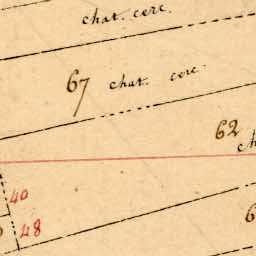 chat. cerc.
67 chat. cerc.
62
ch
40
48
6